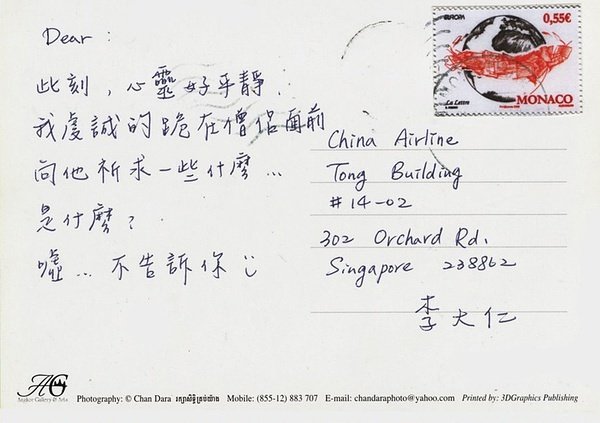 Dear :
此刻，心靈好平靜.
我虔誠的跪在僧侶面前
向他祈求一些什麼...
是什麼？
噓... 不告訴你
EUROPA
0,55€
La Lettre
MONACO
China Airline
Tong Building
#14-02
302 Orchard Rd.
Singapore 238862
李大仁
AG
Angkor Gallery & Arts
Photography: © Chan Dara រក្សាសិទ្ធិគ្រប់យ៉ាង Mobile: (855-12) 883 707 E-mail: chandaraphoto@yahoo.com Printed by: 3DGraphics Publishing